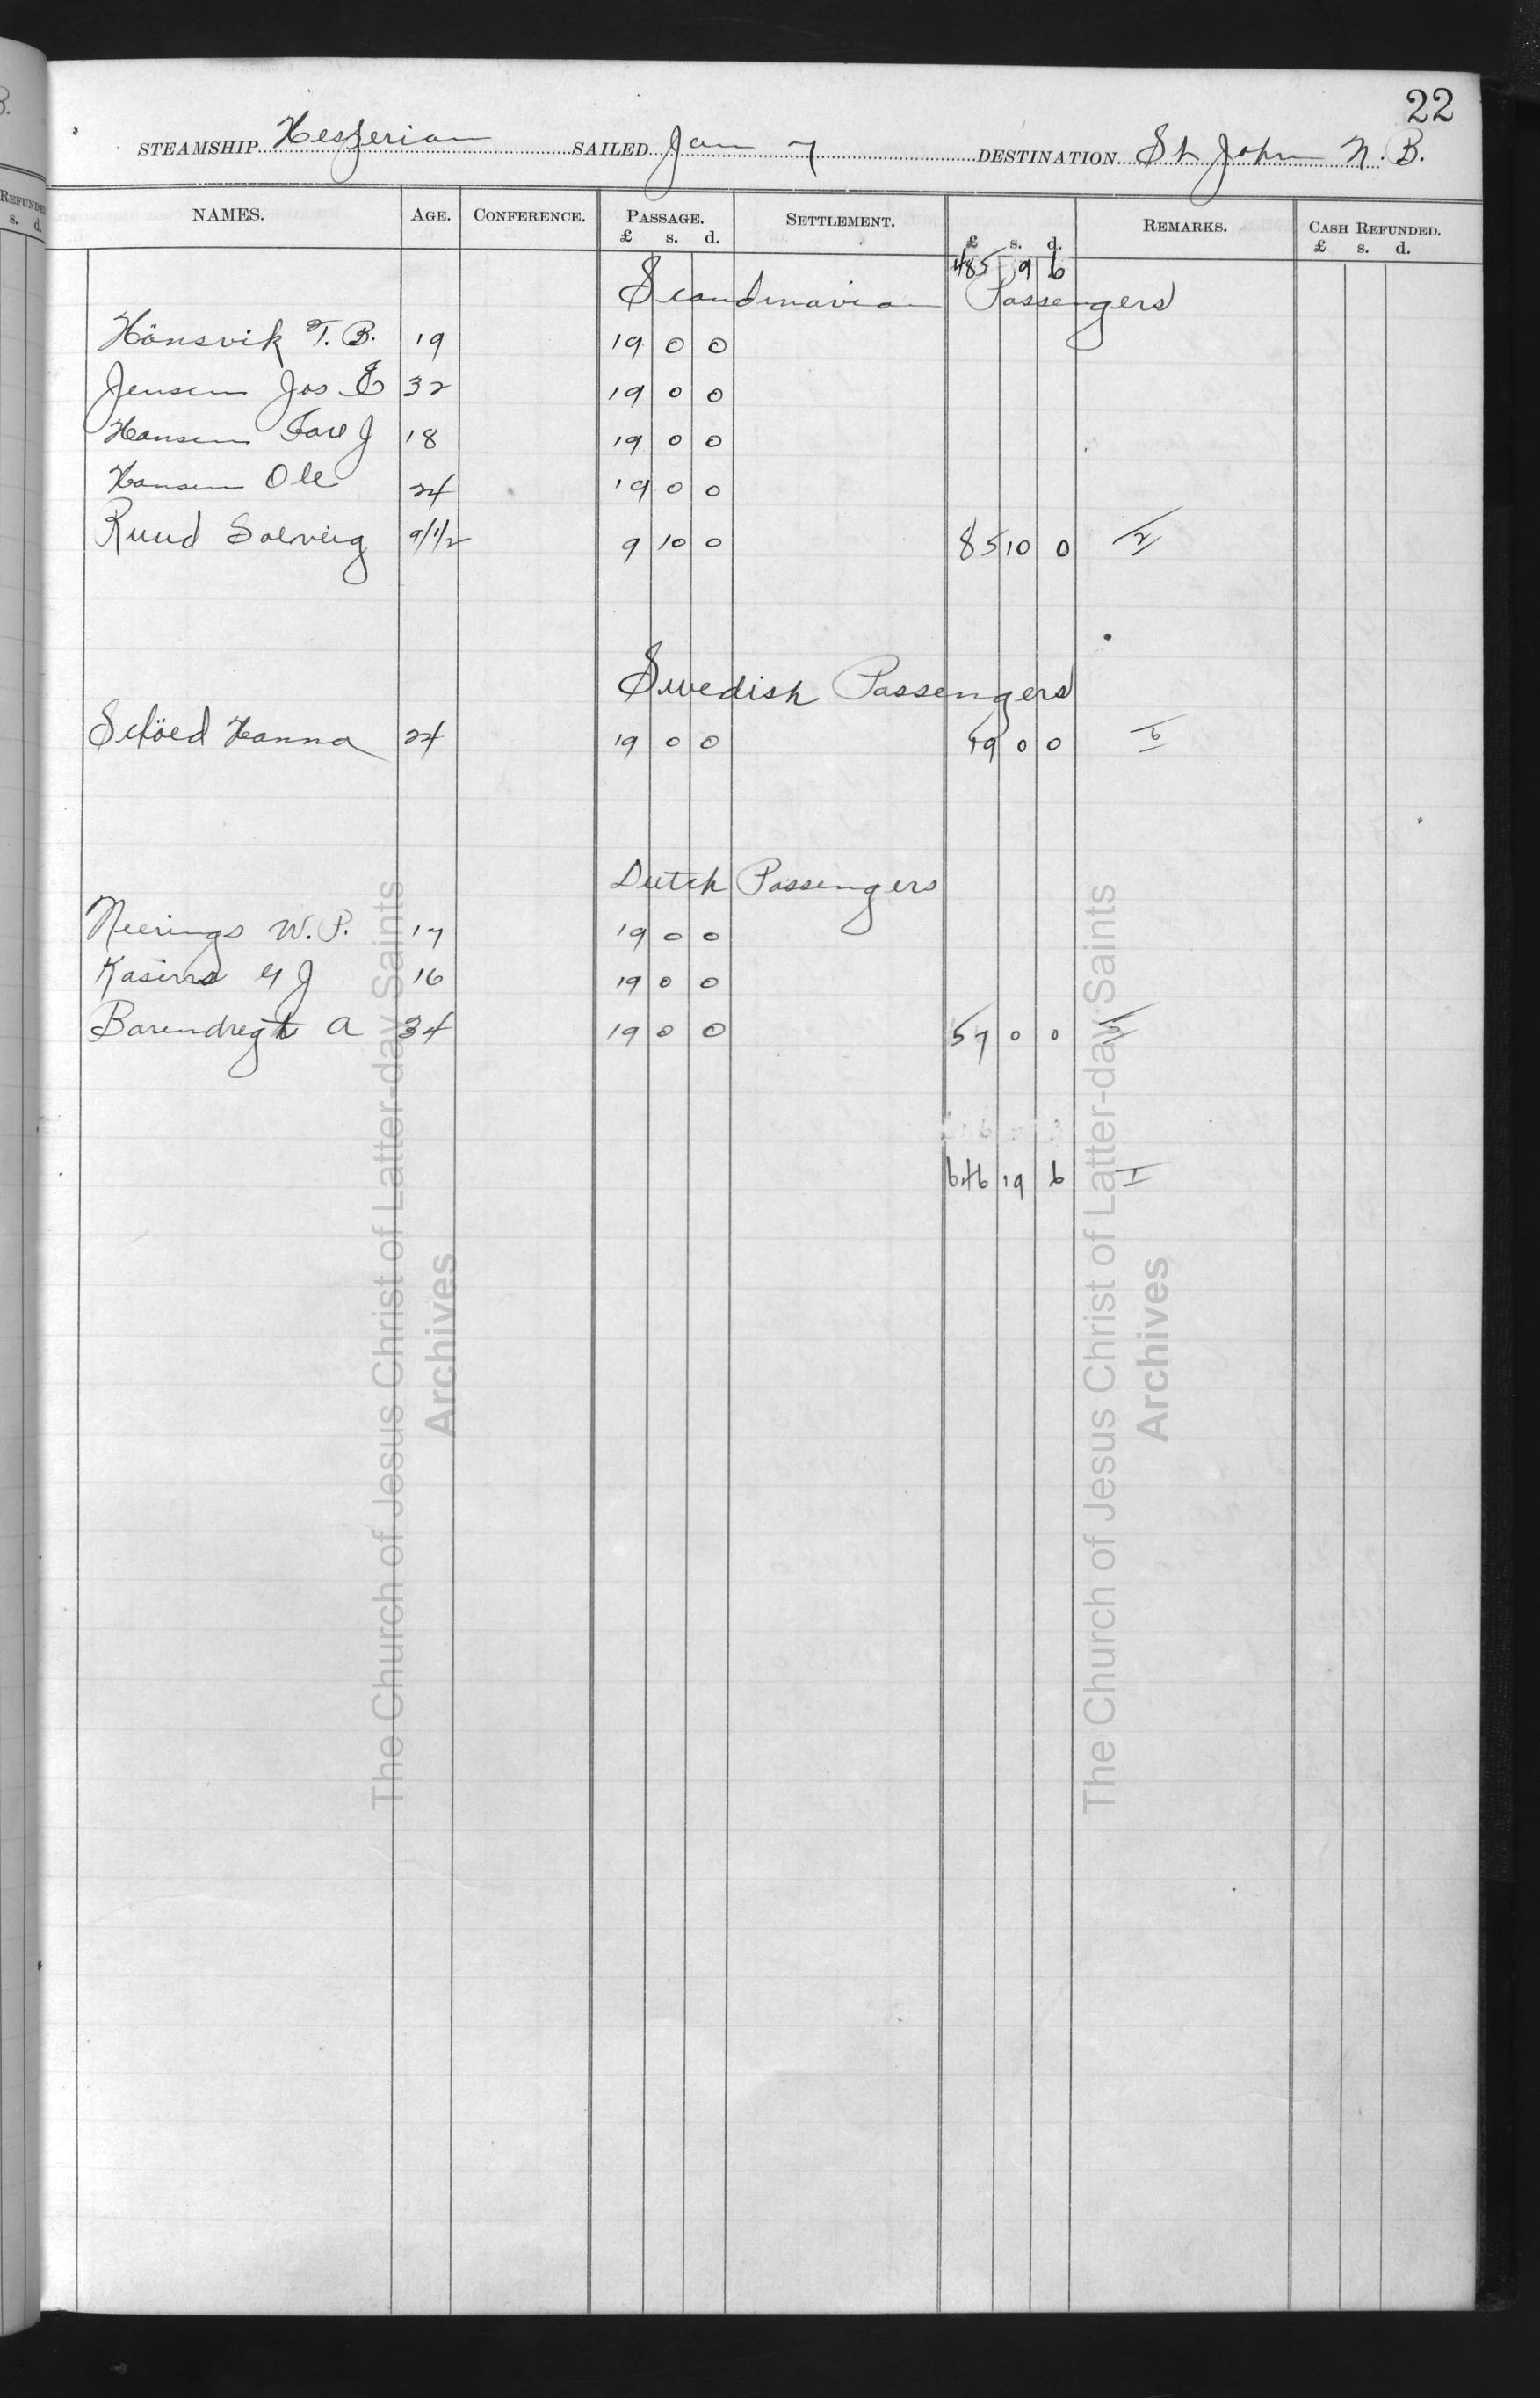 22
STEAMSHIP Hesperian SAILED Jan 7 DESTINATION St John N. B.
NAMES. AGE. CONFERENCE. PASSAGE. £ s. d. SETTLEMENT. £ s. d. REMARKS. CASH REFUNDED. £ s. d.
REFUNDED
s. d.
485 9 6
Scandinavian Passengers
Hönsvik T. B. 19 19 0 0
Jensen Jos E 32 19 0 0
Hansen J 18 19 0 0
Hansen Ole 24 19 0 0
Ruud Solveig 9 1/2 9 10 0 85 10 0
Swedish Passengers
Hanna 24 19 0 0 19 0 0
Dutch Passengers
Neerings W. P. 17 19 0 0
J 16 19 0 0
Barendregt A 34 19 0 0 57 0 0
646 19 6
The Church of Jesus Christ of Latter-day Saints
Archives
The Church of Jesus Christ of Latter-day Saints
Archives